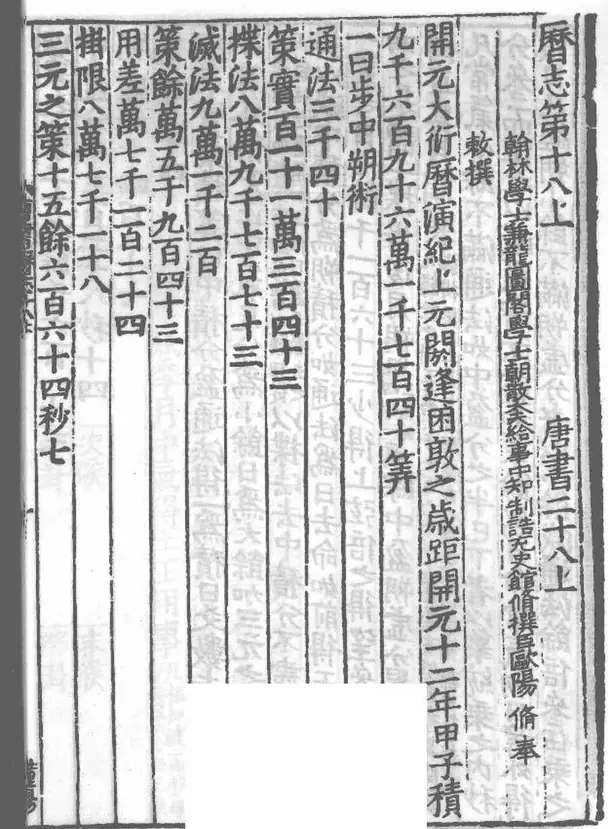 曆志第十八上　唐書二十八上
翰林學士兼龍圖閣學士朝散大夫給事中知制誥充史館脩撰臣歐陽脩奉
敕撰
開元大衍曆演紀上元閼逢困敦之歳距開元十二年甲子積
九千六百九十六萬一千七百四十筭
一曰步中朔術
通法三千四十
策實百一十一萬三百四十三
揲法八萬九千七百七十三
減法九萬一千二百
策餘萬五千九百四十三
用差萬七千一百二十四
掛限八萬七千一十八
三元之策十五餘六百六十四秒七